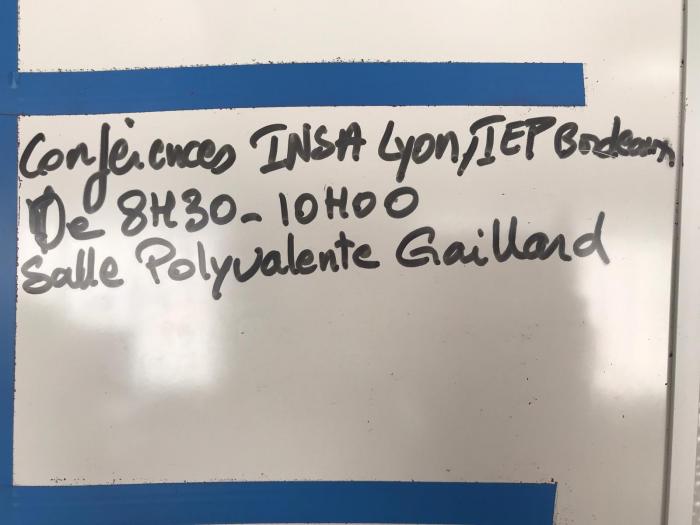 Conférences INSA Lyon/IEP Bordeaux
De 8H30-10H00
Salle Polyvalente Gaillard